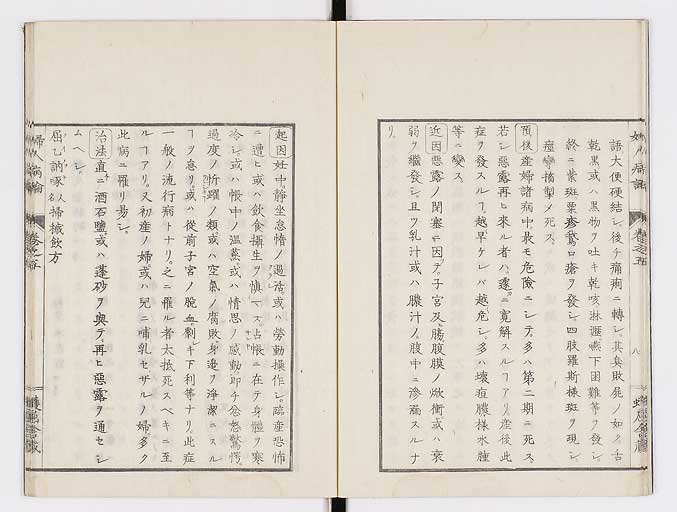 語大便硬結シ後チ痛痢ニ轉シ其臭敗屍ノ如ク舌
乾黒或ハ黒物ヲ吐キ乾咳淋瀝嚥下困難等ヲ發シ
終ニ葉斑粟疹鵞口瘡ヲ發シ四肢羅斯様斑ヲ現シ
痙攣搐掣メ死ス
預後産婦諸病中最モ危險ニシテ多ハ第二期ニ死ス
若シ惡露再ヒ來ル者ハ遽ニ寛解スルヿアリ産後此
症ヲ發スルヿ越早ケレバ越危シ多ハ壊疽膿様水腫
等ニ變ス
近因惡露ノ閉塞ニ因テ子宮及ヒ腸腹膜ノ焮衝或ハ衰
弱ヲ繼發シ且ツ乳汁或ハ膿汁ノ腹中ニ滲漏スルナ
リ
八
起因妊中静坐怠惰ノ過活或ハ勞動操作シ臨産恐怖
ニ遭ヒ或ハ飲食攝生ヲ慎マス占帳ニ在テ身體ヲ寒
冷シ或ハ帳中ノ温蒸或ハ情思ノ感動即チ忿怒驚愕
過度ノ忻躍ノ類或ハ空氣ノ腐敗身邊ヲ浄潔ニスル
ヿヲ怠リ或ハ從前子宮ノ脱血劇シキ下利等ナリ此症
一般ノ流行病トナリ之ニ罹ル者大抵死スベキニ至
ルヿアリ又初産ノ婦或ハ兒ニ哺乳セザルノ婦多ク
此病ニ罹リ易シ
治法直ニ酒石鹽或ハ蓬砂ヲ與テ再ヒ惡露ヲ通セシ
ムヘシ
屈乙訥㖨人名掃摵飲方
婦人病論
卷之五